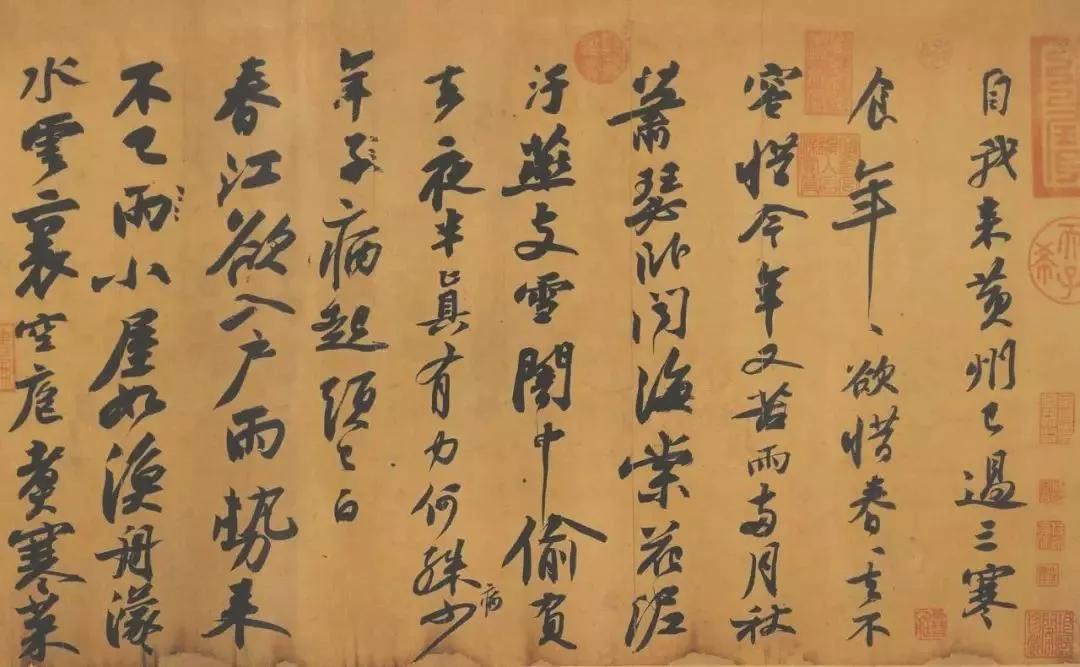 自我来黄州已過三寒
食年、欲惜春、去不
容惜今年又苦雨兩月秋
蕭瑟卧聞海棠花泥
汙燕支雪闇中偷負
去夜半真有力何殊病少
年子病起頭已白
春江欲入户雨勢来
不已雨小屋如漁舟濛、
水雲裏空庖煮寒菜
古希天子